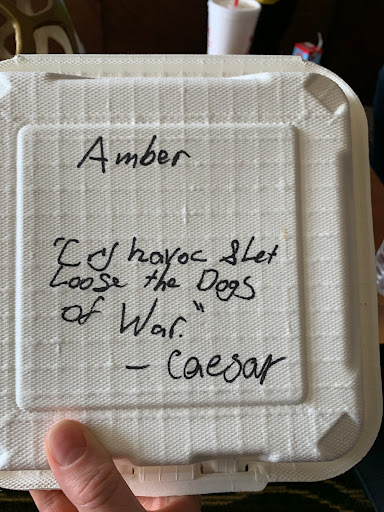 Amber
"Cry havoc & Let
Loose the Dogs
of War."
- Caesar